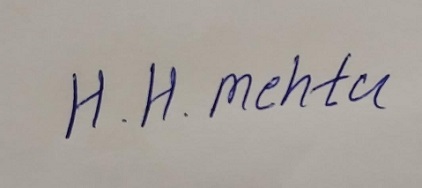 H.H. mehta